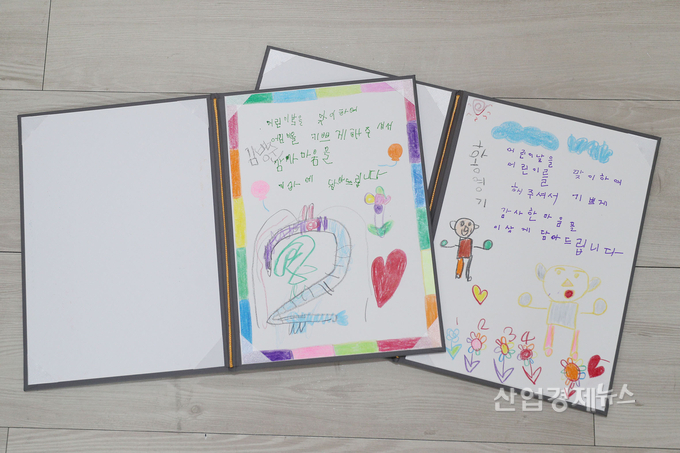 어린이날을 맞이하여
어린이를 기쁘게 해주셔서
감사한 마음을
이 상에 담아드립니다
황영기
어린이날을 맞이하여
어린이를 기쁘게
해주셔서
감사한 마음을
이 상에 담아드립니다
1 2 3 4
산업경제뉴스